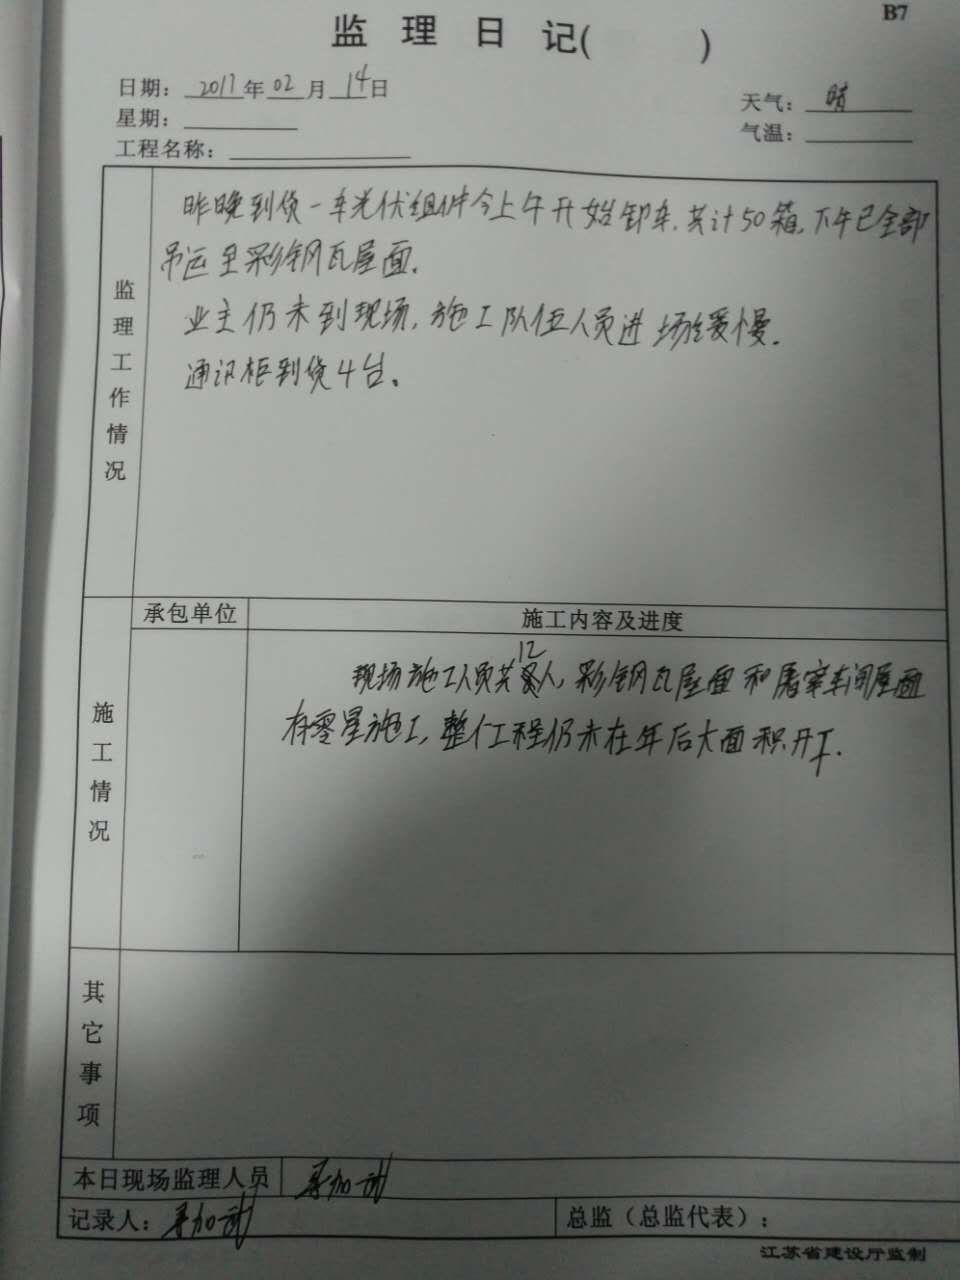 B7
监 理 日 记( )
日期: 2017年02月14日
天气: 晴
星期:
气温:
工程名称:
监理工作情况
昨晚到货一车光伏组件今上午开始卸车,共计50箱,下午已全部
吊运至彩钢瓦屋面.
业主仍未到现场,施工队伍人员进场缓慢.
通讯柜到货4台。
承包单位 施工内容及进度
施工情况
12
现场施工人员共人,彩钢瓦屋面和屠宰车间屋面
有零星施工,整个工程仍未在年后大面积开工.
其它事项
本日现场监理人员
记录人: 总监(总监代表):
江苏省建设厅监制